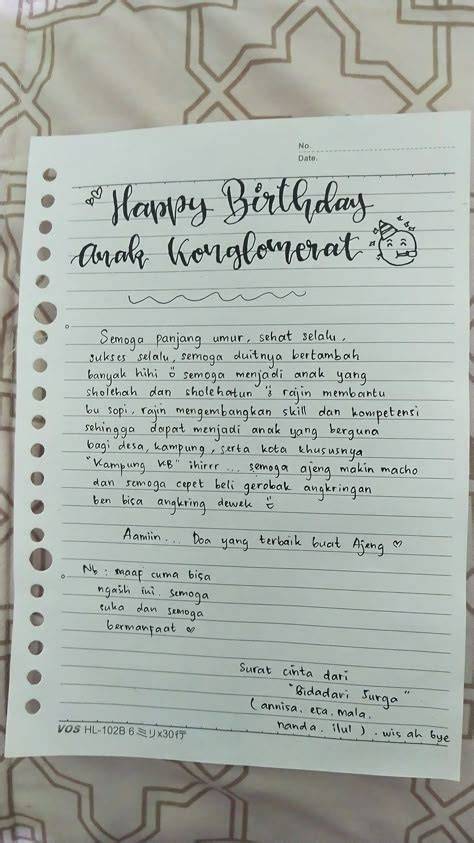 No.
Date.
Happy Birthday
Anak Konglomerat
Semoga panjang umur, sehat selalu,
sukses selalu, semoga duitnya bertambah
banyak hihi semoga menjadi anak yang
sholehah dan sholehatun rajin membantu
bu sopi, rajin mengembangkan skill dan kompetensi
sehingga dapat menjadi anak yang berguna
bagi desa, kampung, serta kota khususnya
"Kampung KB" ihirrr... semoga ajeng makin macho
dan semoga cepet beli gerobak angkringan
ben bisa angkring dewek
Aamiin... Doa yang terbaik buat Ajeng ♡
Nb : maap cuma bisa
ngasih ini. semoga
suka dan semoga
bermanfaat ♡
Surat cinta dari
"Bidadari Surga"
(annisa, eta, mala,
nanda, ilul). wis ah bye
VOS HL-102B 6ミリx30行